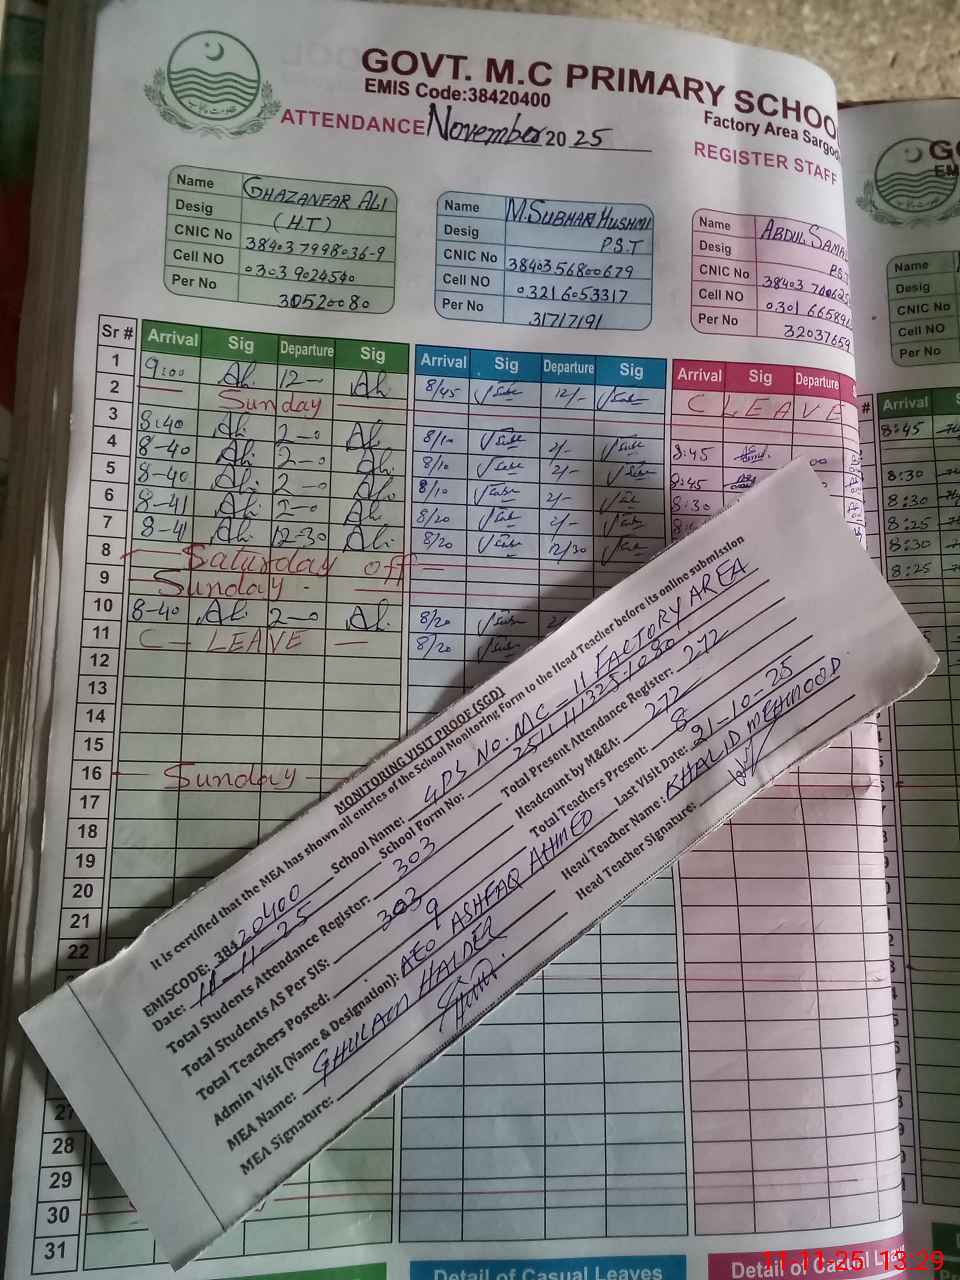 GOVT. M.C PRIMARY SCHOO
EMIS Code:38420400
Factory Area Sargod
ATTENDANCE November 20 25
REGISTER STAFF
Name GHAZANFAR ALI
Desig (H.T)
CNIC No 384037998036-9
Cell NO 03039024540
Per No 30520080
Name M.SUBHAN HUSHMI
Desig P.S.T
CNIC No 3840356800679
Cell NO 03216053317
Per No 31717191
Name ABDUL SAMA
Desig P.S.T
CNIC No
Cell NO 0301 665891
Per No 32037659
Name
Desig
CNIC No
Cell NO
Per No
Sr # Arrival Sig Departure Sig Arrival Sig Departure Sig Arrival Sig Departure
Arrival
1 9:00 12- 8/45 12/- C LEAVE 8:45
2 Sunday
3 8:40 2-0 8/10 2/- 8:45 8:30
4 8-40 2-0 8/10 2/- 8:45 8:30
5 8-40 2-0 8/10 2/- 8:30 8:25
6 8-41 2-0 8/20 2/- 8:30
7 8-41 12-30 8/20 12/30 8:25
8 Saturday off
9 Sunday
10 8-40 2-0 8/20
11 C - LEAVE - 8/20
12
13
14
15
16 Sunday
17
18
19
20
21
22
27
28
29
30
31
MONITORING VISIT PROOF (SGD)
It is certified that the MEA has shown all entries of the School Monitoring Form to the Head Teacher before its online submission
EMISCODE: 38420400 School Name: GPS No. MC-11 FACTORY AREA
Date: 11-11-25 School Form No:
Total Students Attendance Register: 303 Total Present Attendance Register: 272
Total Students AS Per SIS: 303 Headcount by M&EA: 272
Total Teachers Posted: 9 Total Teachers Present: 8
Admin Visit (Name & Designation): AEO ASHFAQ AHMED Last Visit Date: 21-10-25
MEA Name: GHULAM HAIDER Head Teacher Name: KHALID MEHMOOD
MEA Signature: Head Teacher Signature:
Detail of Casual Leaves
Detail of Casual Leave
11-11-25 13:29